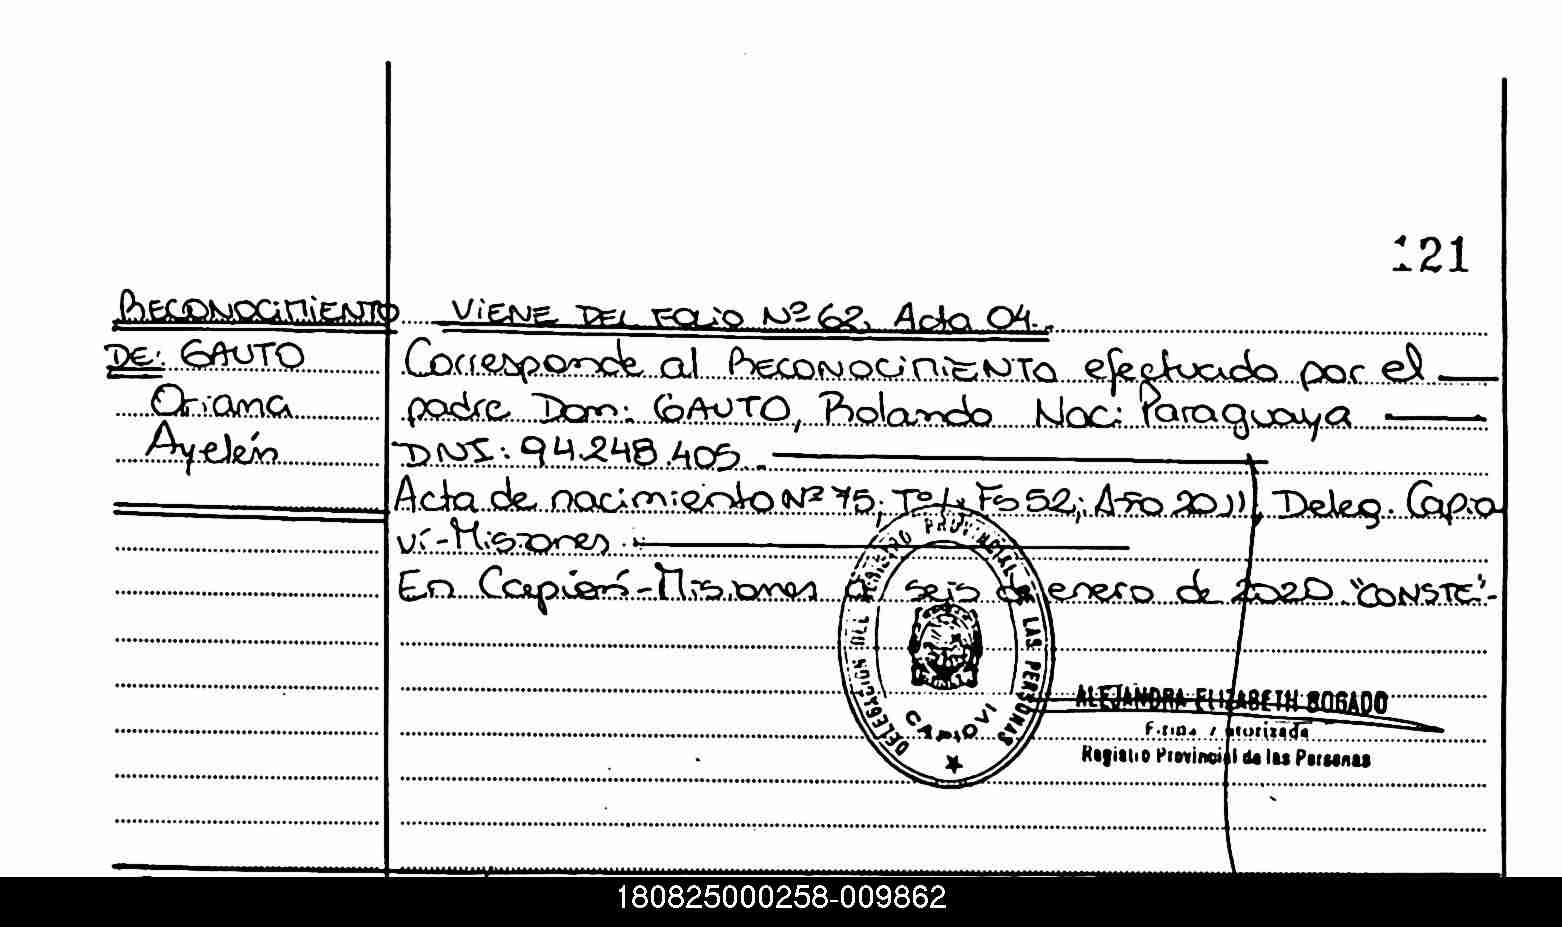 121
RECONOCIMIENTO
DE: GAUTO
Oriana
Ayelén
VIENE DEL FOLIO Nº 62, Acta 04.
Corresponde al RECONOCIMIENTO efectuado por el
padre Don: GAUTO, Rolando Nac: Paraguaya
DNI: 94.248.405
Acta de nacimiento Nº 75; Tº Fº 52; Año 2011, Deleg. Capio
ví-Misiones
En Capioví-Misiones a seis de enero de 2020. "CONSTE"-
DELEGACION DEL REGISTRO PROVINCIAL DE LAS PERSONAS
CAPIOVI
ALEJANDRA ELIZABETH BOGADO
Firma Autorizada
Registro Provincial de las Personas
180825000258-009862